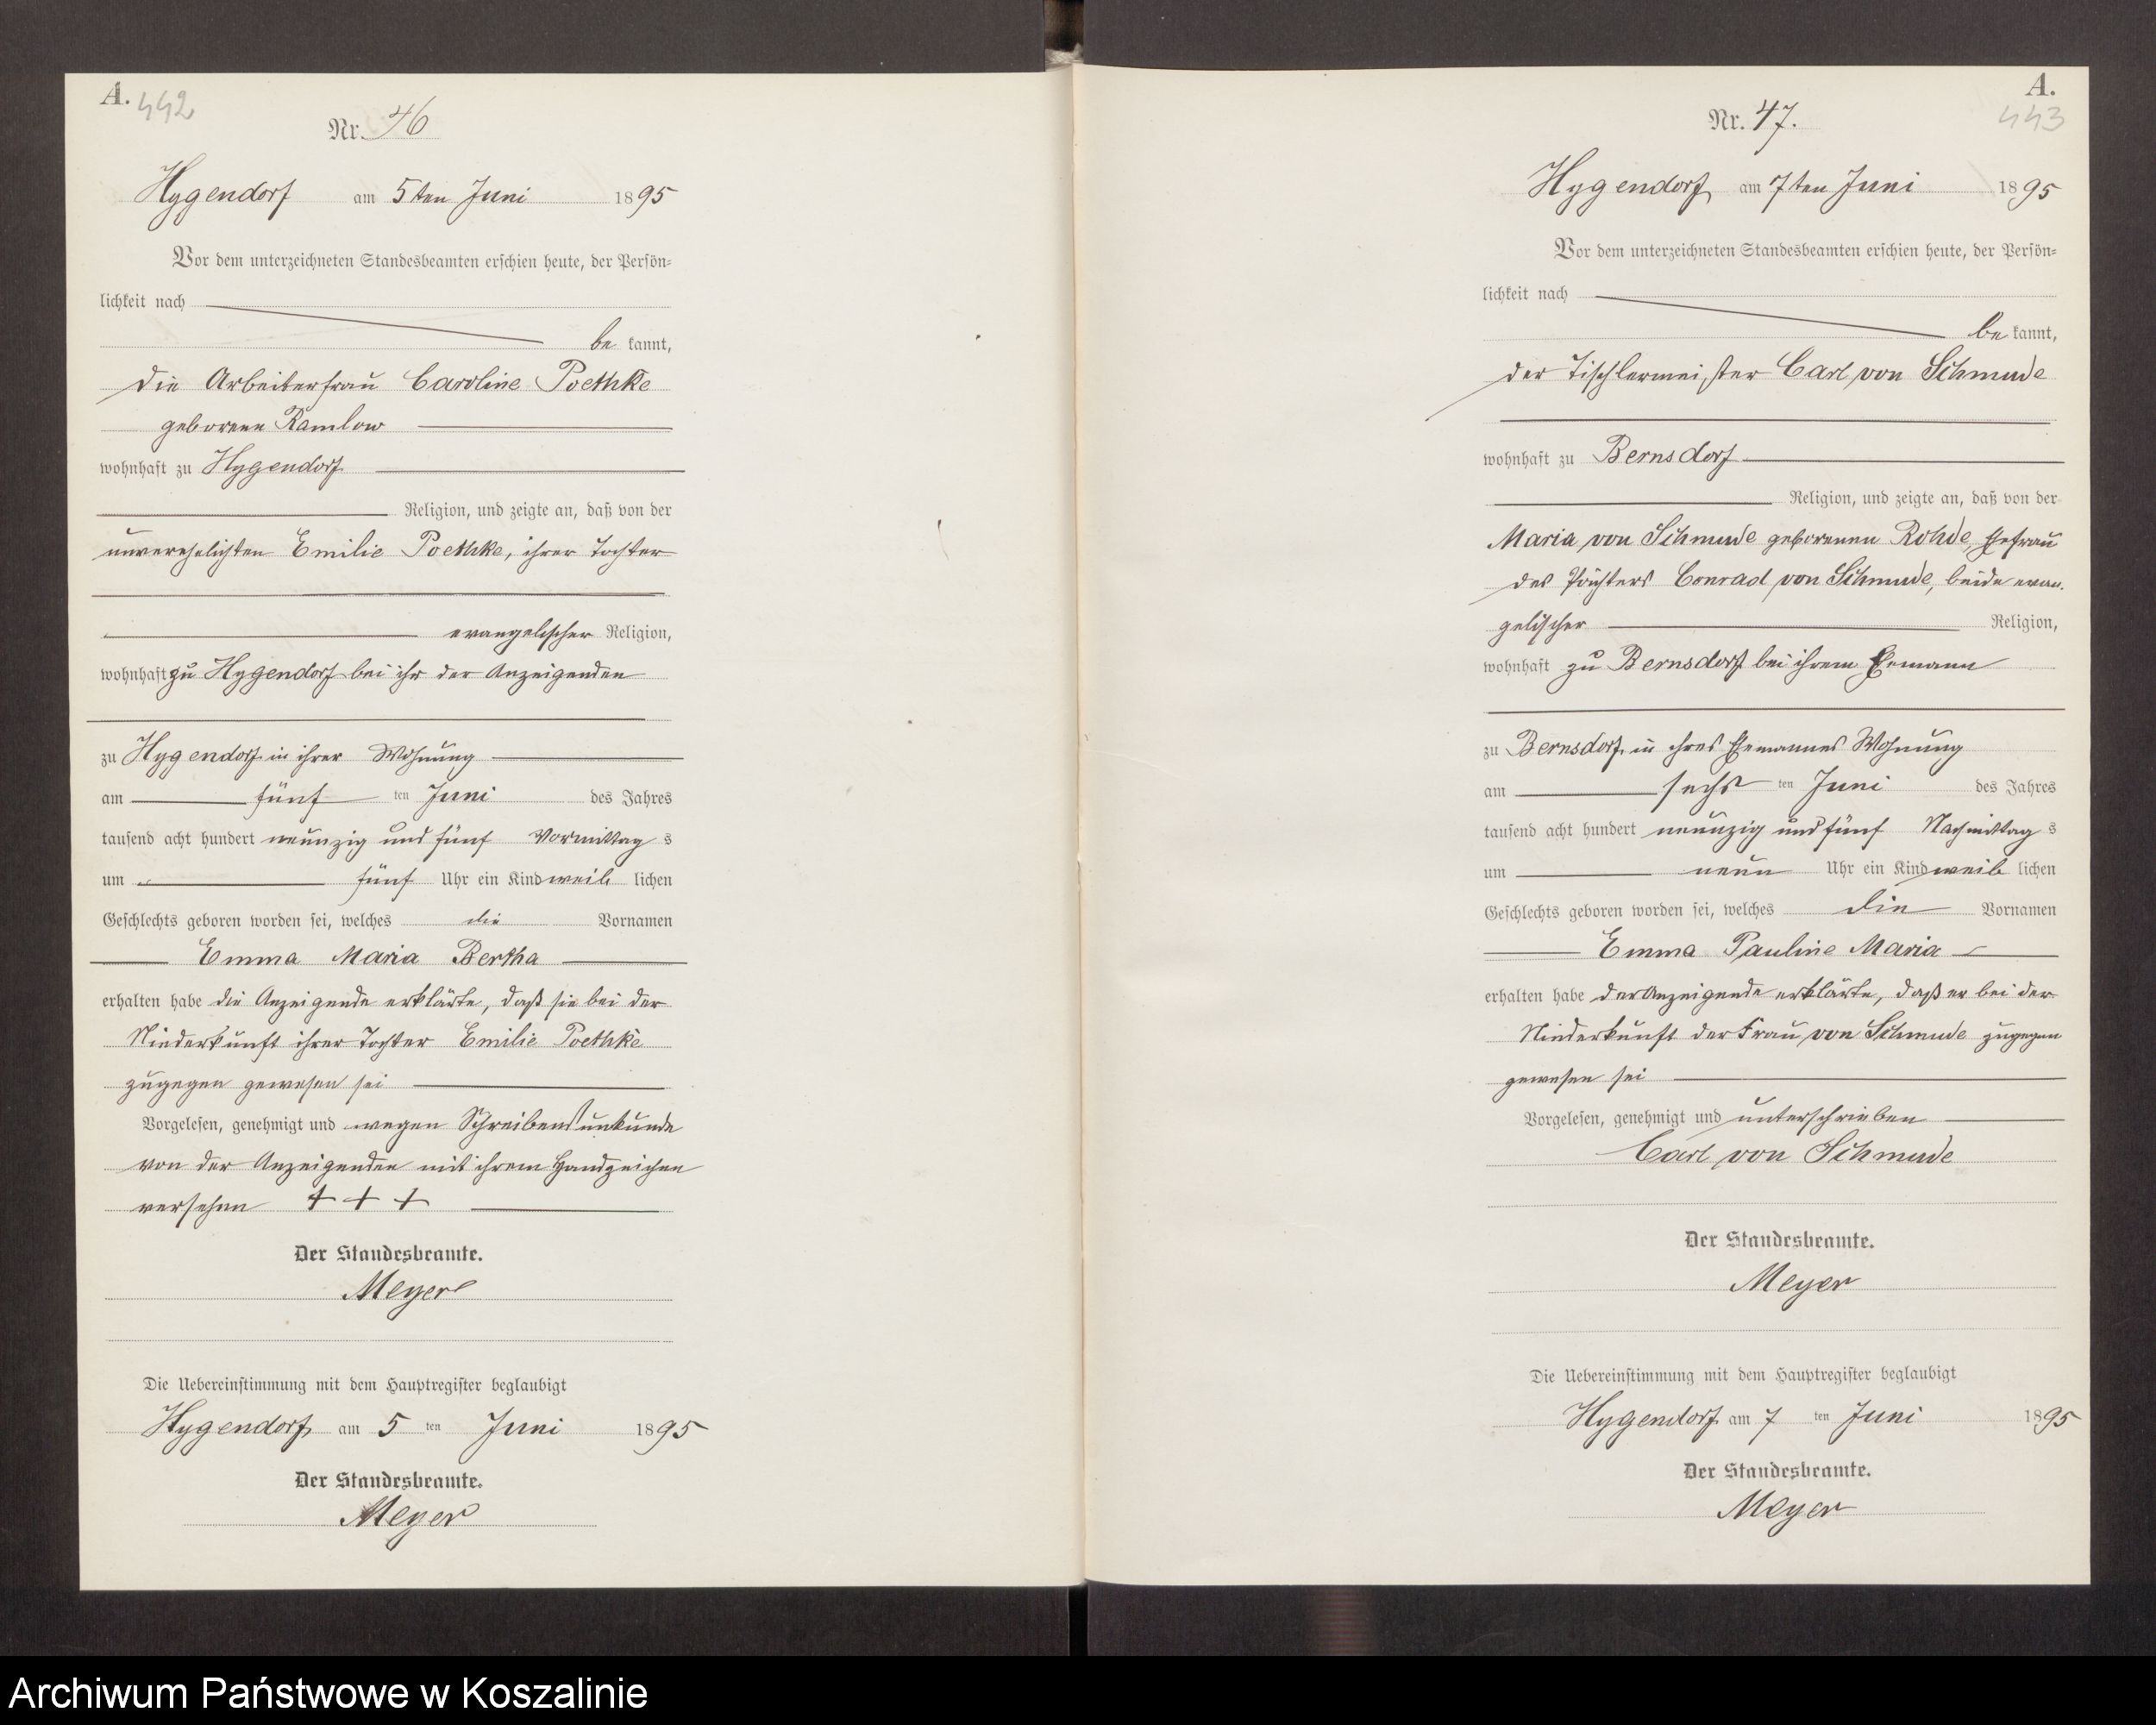 A.
442
Nr. 46
Hygendorf am 5ten Juni 1895
Vor dem unterzeichneten Standesbeamten erschien heute, der Persön-
lichkeit nach
be kannt,
die Arbeiterfrau Caroline Poethke
geborene Ramlow
wohnhaft zu Hygendorf
Religion, und zeigte an, daß von der
unverehelichten Emilie Poethke, ihrer Tochter
evangelischer Religion,
wohnhaft zu Hygendorf bei ihr der Anzeigenden
zu Hygendorf in ihrer Wohnung
am fünf ten Juni des Jahres
tausend acht hundert neunzig und fünf Vormittag s
um fünf Uhr ein Kind weib lichen
Geschlechts geboren worden sei, welches die Vornamen
Emma Maria Bertha
erhalten habe die Anzeigende erklärte, daß sie bei der
Niederkunft ihrer Tochter Emilie Poethke
zugegen gewesen sei
Vorgelesen, genehmigt und wegen Schreibensunkunde
von der Anzeigenden mit ihrem Handzeichen
versehen + + +
Der Standesbeamte.
Meyer
Die Uebereinstimmung mit dem Hauptregister beglaubigt
Hygendorf am 5 ten Juni 1895
Der Standesbeamte.
Meyer
A.
443
Nr. 47.
Hygendorf am 7ten Juni 1895
Vor dem unterzeichneten Standesbeamten erschien heute, der Persön-
lichkeit nach
be kannt,
der Tischlermeister Carl von Schmude
wohnhaft zu Bernsdorf
Religion, und zeigte an, daß von der
Maria von Schmude geborenen Rohde, Ehefrau
des Pächters Conrad von Schmude, beide evan-
gelischer Religion,
wohnhaft zu Bernsdorf bei ihrem Ehemann
zu Bernsdorf in ihres Ehemannes Wohnung
am sechs ten Juni des Jahres
tausend acht hundert neunzig und fünf Nachmittag s
um neun Uhr ein Kind weib lichen
Geschlechts geboren worden sei, welches die Vornamen
Emma Pauline Maria
erhalten habe der Anzeigende erklärte, daß er bei der
Niederkunft der Frau von Schmude zugegen
gewesen sei
Vorgelesen, genehmigt und unterschrieben
Carl von Schmude
Der Standesbeamte.
Meyer
Die Uebereinstimmung mit dem Hauptregister beglaubigt
Hygendorf am 7 ten Juni 1895
Der Standesbeamte.
Meyer
Archiwum Państwowe w Koszalinie